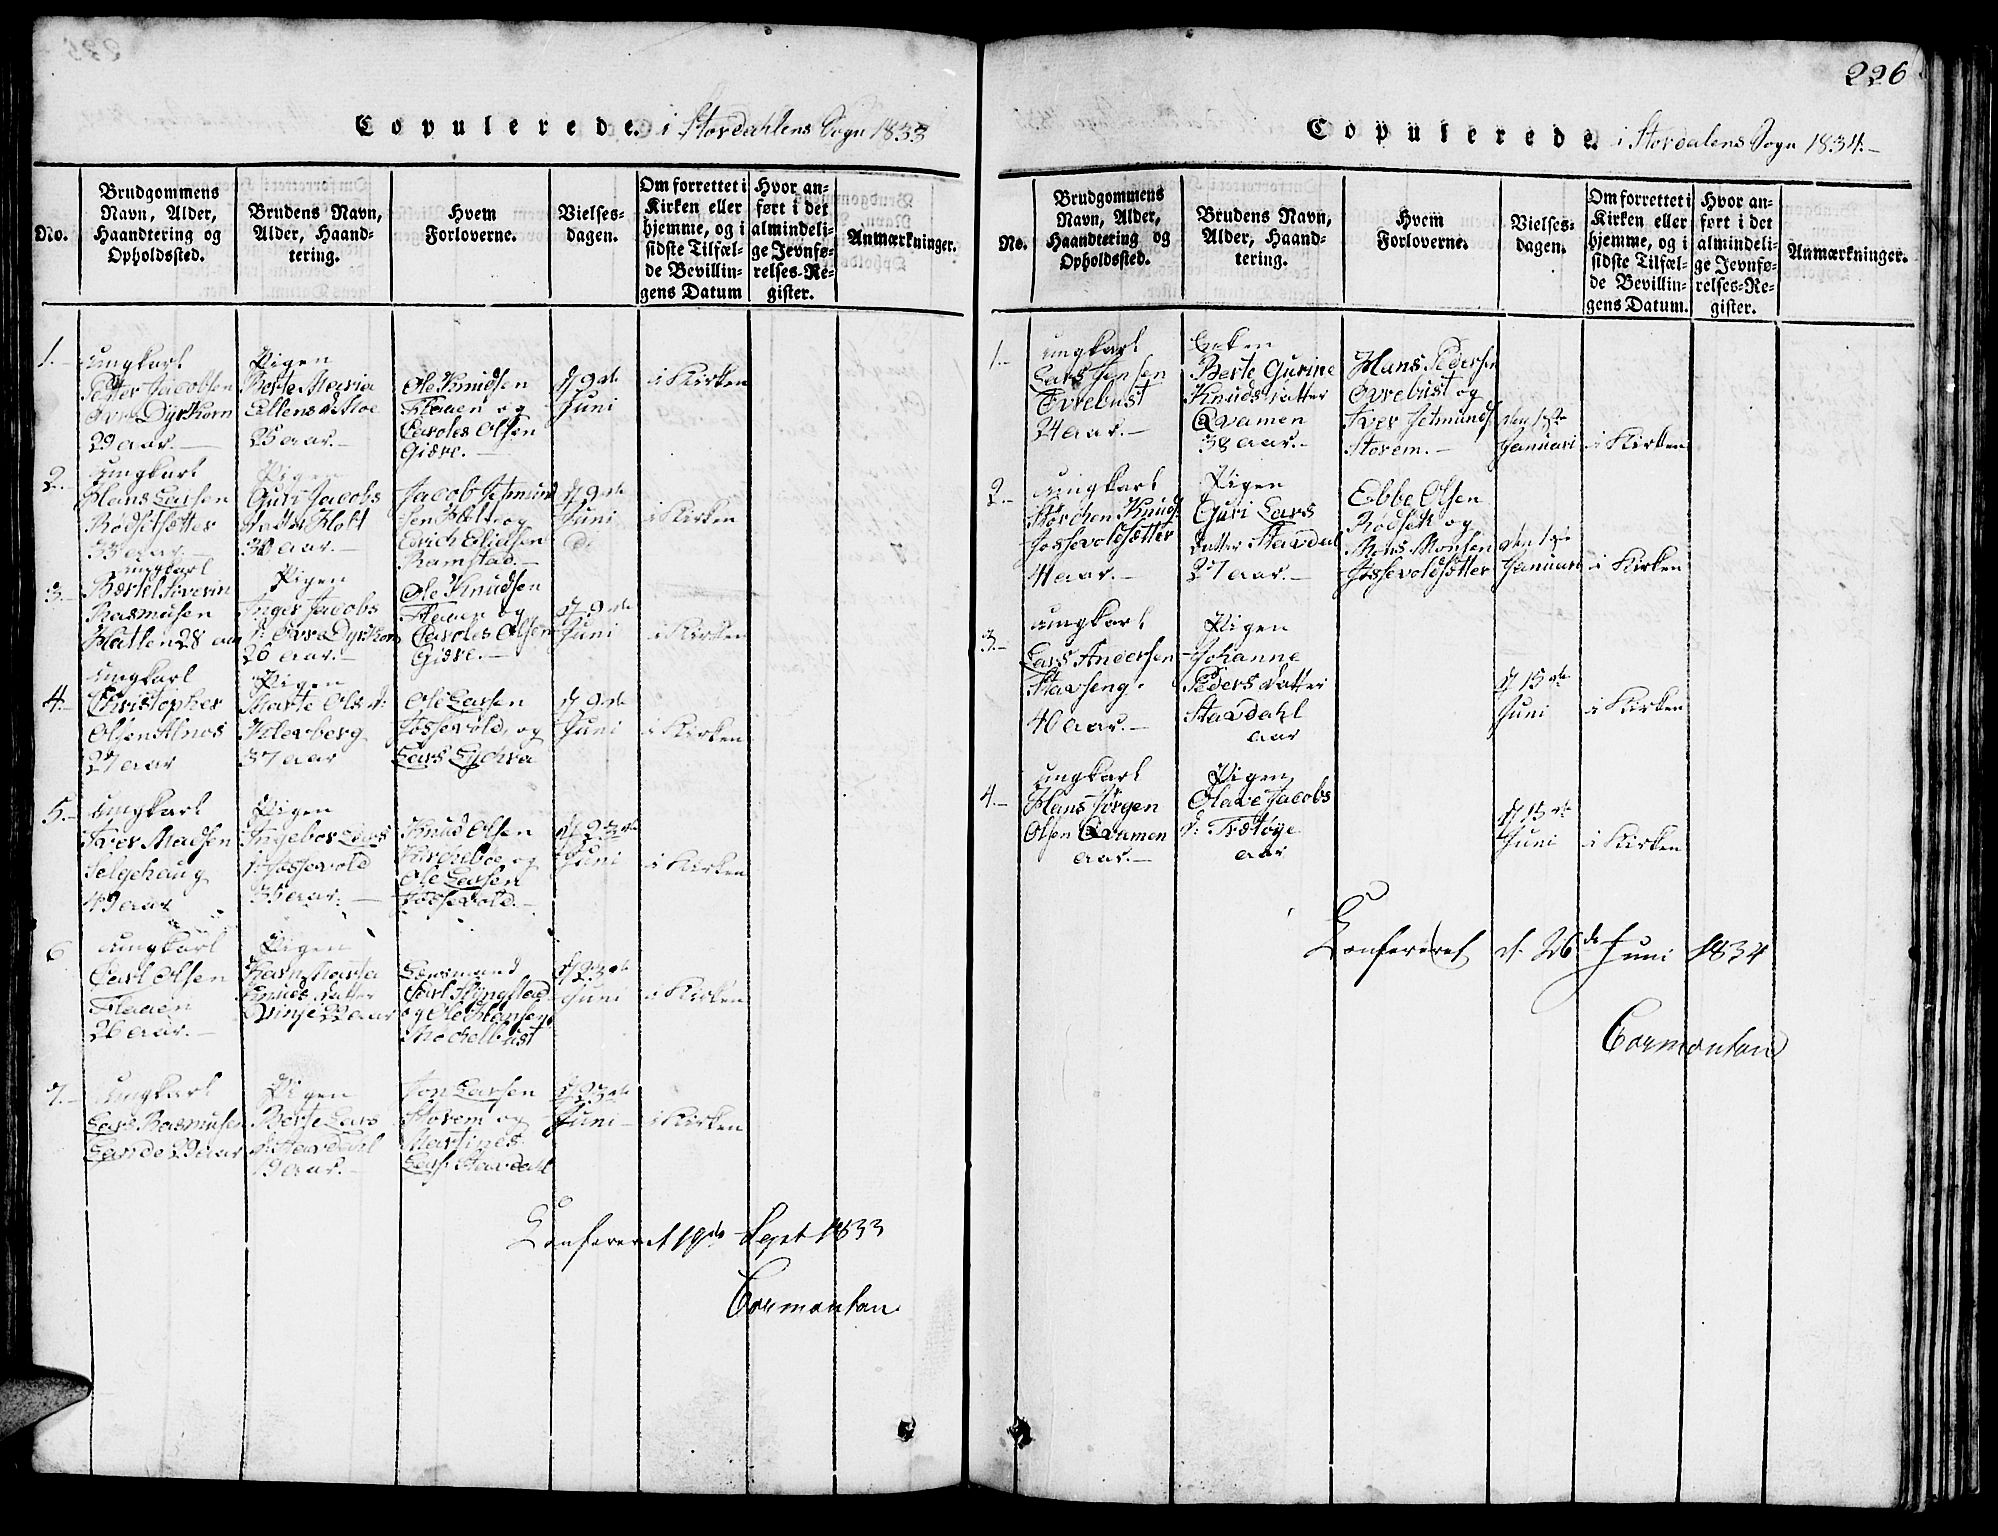 226
Copulerede i Stordahlens Sogn 1833
No.
Brudgommens
Navn, Alder,
Haandtering og
Opholdssted.
Brudens Navn,
Alder, Haand-
tering.
Hvem
Forloverne.
Vielses-
dagen.
Om forrettet i
Kirken eller
hjemme, og i
sidste Tilfæl-
de Bevillin-
gens Datum
Hvor an-
ført i det
almindeli-
ge Jevnfø-
relses-Re-
gister.
Anmærkninger.
1.-
ungkarl
Petter Jacobsen
Øvre Dyrkorn
29 aar.-
Pigen
Berte Maria
Ellens d Moe
25 aar.-
Ole Knudsen
Flaaen og
Caroles Olsen
Giære.-
d 9de
Juni
i Kirken
2.-
ungkarl
Hans Larsen
Rødsetsætter
33 aar.-
Pigen
Guri Jacobs
datter Klokt
30 aar.-
Jacob Jetmund
sen Holte og
Edrich Eliasen
Ramstad.-
d 9de
Juni
i Kirken
3.-
ungkarl
Bærtel Siverin
Rasmusen
Hatlen 28 aar
Pigen
Inger Jacobs
d: Øvre Dyrkorn
26 aar.-
Ole Knudsen
Flaaen og
Caroles Olsen
Giære.-
d 9de
Juni
i Kirken
4.-
ungkarl
Christopher
Olsen Alnos
27 aar
Pigen
Marte Ols d:
Kleiberg
37 aar
Ole Larsen
Jossevold, og
Lars Lychra
d 9de
Juni
i Kirken
5.-
ungkarl
Iver Madsen
Selgehaug
49 aar
Pigen
Ingebor Lars
d: Jossevold
35 aar.-
Knud Olsen
Kirkeboe og
Ole Larsen
Jossevold.-
d 23de
Juni
i Kirken
6
ungkarl
Carl Olsen
Flaaen
26 aar.-
Pigen
Karn Marta
Knuds datter
Vinje 22 aar
Lensmand
Carl Slyngstad
og Ole Hansen
Mechelbust
d 23de
Juni
i Kirken
7.-
ungkarl
Lars Rasmusen
Lande 29 aar
Pigen
Berte Lars
d: Stavdahl
19 aar.-
Jon Larsen
Storem og
Martines
Lars: Stavdahl
d 23de
Juni
i Kirken
Confereret 19de Sept 1833
Cormontan
Copulerede i Stordalens Sogn 1834.-
No.
Brudgommens
Navn, Alder,
Haandtering og
Opholdssted.
Brudens Navn,
Alder, Haand-
tering.
Hvem
Forloverne.
Vielses-
dagen.
Om forrettet i
Kirken eller
hjemme, og i
sidste Tilfæl-
de Bevillin-
gens Datum.
Hvor an-
ført i det
almindeli-
ge Jevnfø-
relses-Re-
gister.
Anmærkninger.
1.-
ungkarl
Lars Jensen
Øvrebust
24 aar.-
Enken
Berte Gurine
Knuds datter
Qvamen
38 aar.-
Hans Pedersen
Øvrebust og
Iver Jetmunds
Storem.-
den 1ste
Januari
i Kirken
2.-
ungkarl
Størchen Knud
Jossevoldsætter
41 aar.-
Pigen
Guri Lars
datter Stavdal
27 aar.-
Ebbe Olsen
Rødsæt og
Mons Monsen
Jossevoldsætter
den 1ste
Januari
i Kirken
3.-
ungkarl
Lars Andersen
Stavseng.
40 aar.-
Pigen
Johanne
Peders datter
Stavdahl
aar
d 15de
Juni
i Kirken
4.-
ungkarl
Hans Jørgen
Olsen Qvamen
aar.-
Pigen
Olave Jacobs
d: Trætøye
aar
d 15de
Juni
i Kirken
Confereret d. 26de Juni 1834
Cormontan